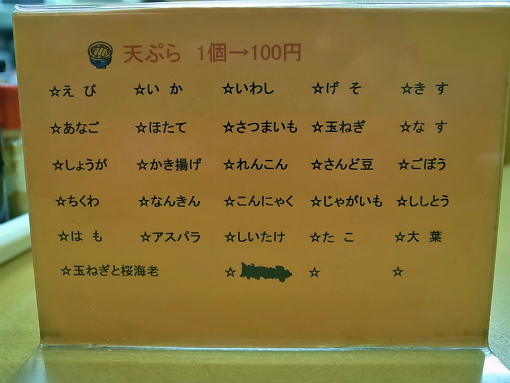 天ぷら 1個→100円
☆えび ☆いか ☆いわし ☆げそ ☆きす
☆あなご ☆ほたて ☆さつまいも ☆玉ねぎ ☆なす
☆しょうが ☆かき揚げ ☆れんこん ☆さんど豆 ☆ごぼう
☆ちくわ ☆なんきん ☆こんにゃく ☆じゃがいも ☆ししとう
☆はも ☆アスパラ ☆しいたけ ☆たこ ☆大葉
☆玉ねぎと桜海老 ☆ ☆ ☆